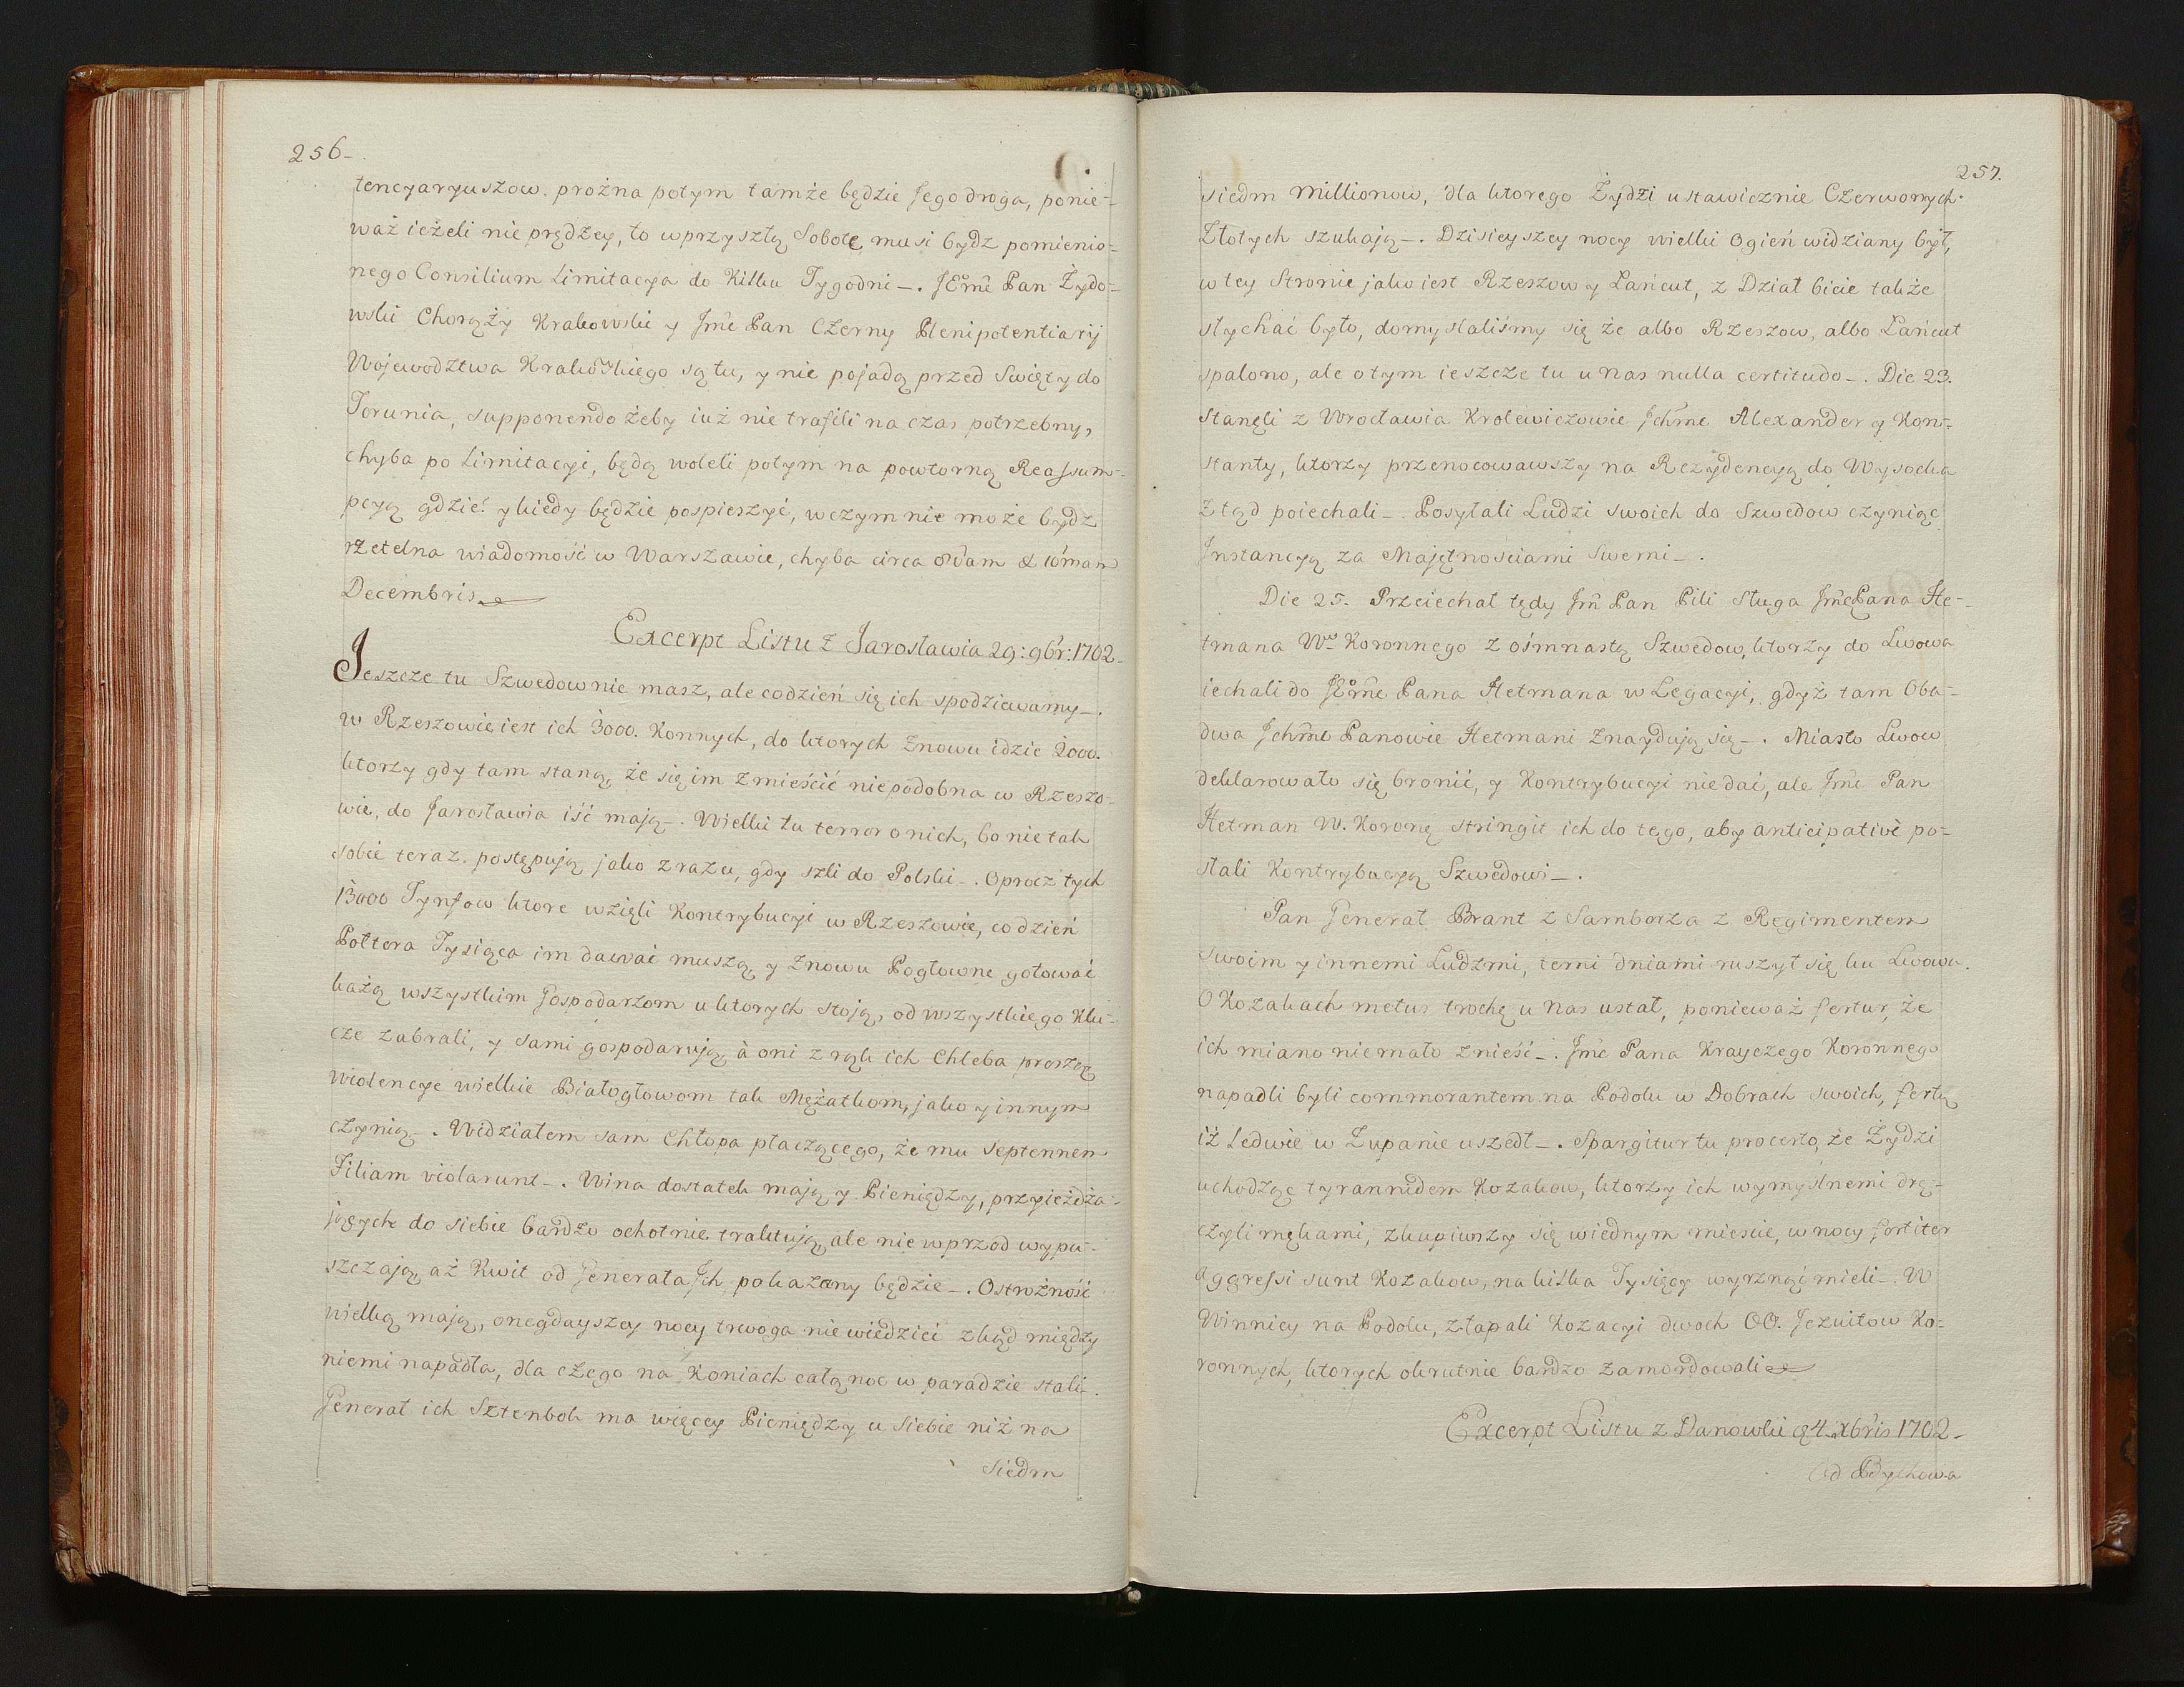 256
tencyaryuszow. prożna potym tamże będzie Jego droga, ponie=
waż ieżeli nie prędzey, to w przyszłą Sobotę musi bydz pomienio=
nego Consilium Limitacya do Kilku Tygodni_. JEme Pan Żydo=
wski Chorąży Krakowski y Jme Pan Czerny Plenipotentiarij
Wojewodztwa Krakowskiego są tu, y nie pojadą przed Swięty do
Torunia, supponendo żeby iuż nie trafili na czas potrzebny,
chyba po Limitacyi, będą woleli potym na powtorną Reassum=
pcyą gdzie? y kiedy będzie pospieszyć, w czym nie może bydz
rzetelna wiadomość w Warszawie, chyba circa 8vam & 10mam
Decembris
Excerpt Listu z Jarosławia 29: 9br: 1702_
Jeszcze tu Szwedow nie masz, ale codzień się ich spodziewamy_.
w Rzeszowie iest ich 3000. Konnych, do ktorych znowu idzie 2000.
ktorzy gdy tam staną, że się im zmieścić niepodobna w Rzeszo=
wie, do Jarosławia iść mają_. Wielki tu terror o nich, bo nie tak
sobie teraz postępują jako zrazu, gdy szli do Polski_. Oprocz tych
13000 Tynfow ktore wzięli Kontrybucyi w Rzeszowie, co dzień
Połtora Tysiąca im dawać muszą y znowu Pogłowne gotować
każą wszystkim Gospodarzom u ktorych stoją, od wszystkiego Klu=
cze zabrali, y sami gospodarują à oni z rąk ich Chleba proszą
Wiolencye wielkie Białogłowom tak Mężatkom, jako y innym
czynią_. Widziałem sam Chłopa płaczącego, że mu septennem
Filiam violarunt_. Wina dostatek mają y Pieniędzy, przyieżdża=
jących do siebie bardzo ochotnie traktują, ale nie wprzod wypu=
szczają, aż Kwit od Generała Jch pokazany będzie_. Ostrożność
wielką mają, onegdayszey nocy trwoga nie wiedzieć zkąd między
niemi napadła, dla czego na Koniach całą noc w paradzie stali_.
Generał ich Sztenbok ma więcey Pieniędzy u siebie niż na
siedm
257.
siedm Millionow, dla ktorego Żydzi ustawicznie Czerwonych
Złotych szukają_. Dzisieyszey nocy wielki Ogień widziany był,
w tey Stronie jako iest Rzeszow y Łańcut, z Dział bicie także
słychać było, domyslaliśmy się że albo Rzeszow, albo Łańcut
spalono, ale o tym ieszcze tu u nas nulla certitudo_. Die 23.
Stanęli z Wrocławia Krolewiczowie Jchme Alexander y Kon=
stanty, ktorzy przenocowawszy na Rezydencyą do Wysocka
ztąd poiechali_. Posyłali Ludzi swoich do Szwedow czyniąc
Jnstancyą za Majętnościami Swemi_.
Die 25. Przeiechał tędy Jm Pan Pili Sługa Jme Pana He=
tmana Wo Koronnego z ośmnastą Szwedow, ktorzy do Lwowa
iechali do JEme Pana Hetmana w Legacyi, gdyż tam Oba=
dwa Jchme Panowie Hetmani znaydują się_. Miasto Lwow
deklarowało się bronić, y Kontrybucyi nie dać, ale Jme Pan
Hetman W. Koronny stringit ich do tego, aby anticipativè po=
słali Kontrybucyą Szwedowi_.
Pan Generał Brant z Samborza z Regimentem
swoim y innemi Ludzmi, temi dniami ruszył się ku Lwowu.
O Kozakach metus trochę u nas ustał, ponieważ fertur, że
ich miano niemało znieść_. Jme Pana Krayczego Koronnego
napadli byli commorantem na Podolu w Dobrach swoich,
iż ledwie w Żupanie uszedł_. Spargitur tu pro certo, że Żydzi
uchodząc tyrannidem Kozakow, ktorzy ich wymyślnemi drę=
czyli mękami, zkupiwszy się w iednym miescie, w nocy fortiter
aggressi sunt Kozakow, na kilka Tysięcy wyrznąć mieli_. W
Winnicy na Podolu, złapali Kozacyi dwoch OO. Jezuitow Ko=
ronnych, ktorych okrutnie bardzo zamordowali
Excerpt Listu z Danowki 4 Xbris 1702_
Od Bychowa